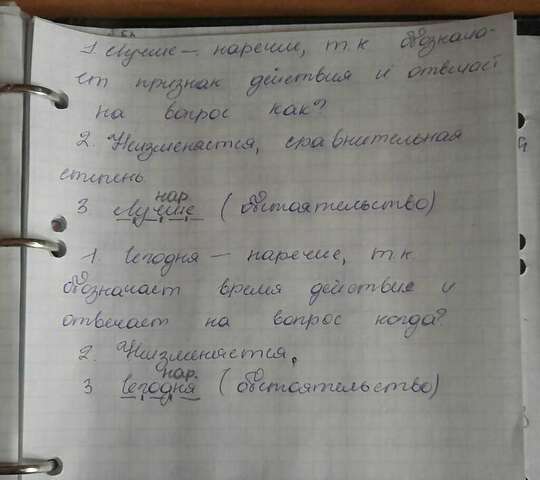 1. Лучше – наречие, т.к обознача-
ет признак действия и отвечает
на вопрос как?
2. Неизменяется, сравнительная
степень.
нар.
3. Лучше (обстоятельство)
1. Сегодня – наречие, т.к.
обозначает время действия и
отвечает на вопрос когда?
2. Неизменяется,
нар.
3 Сегодня (обстоятельство)